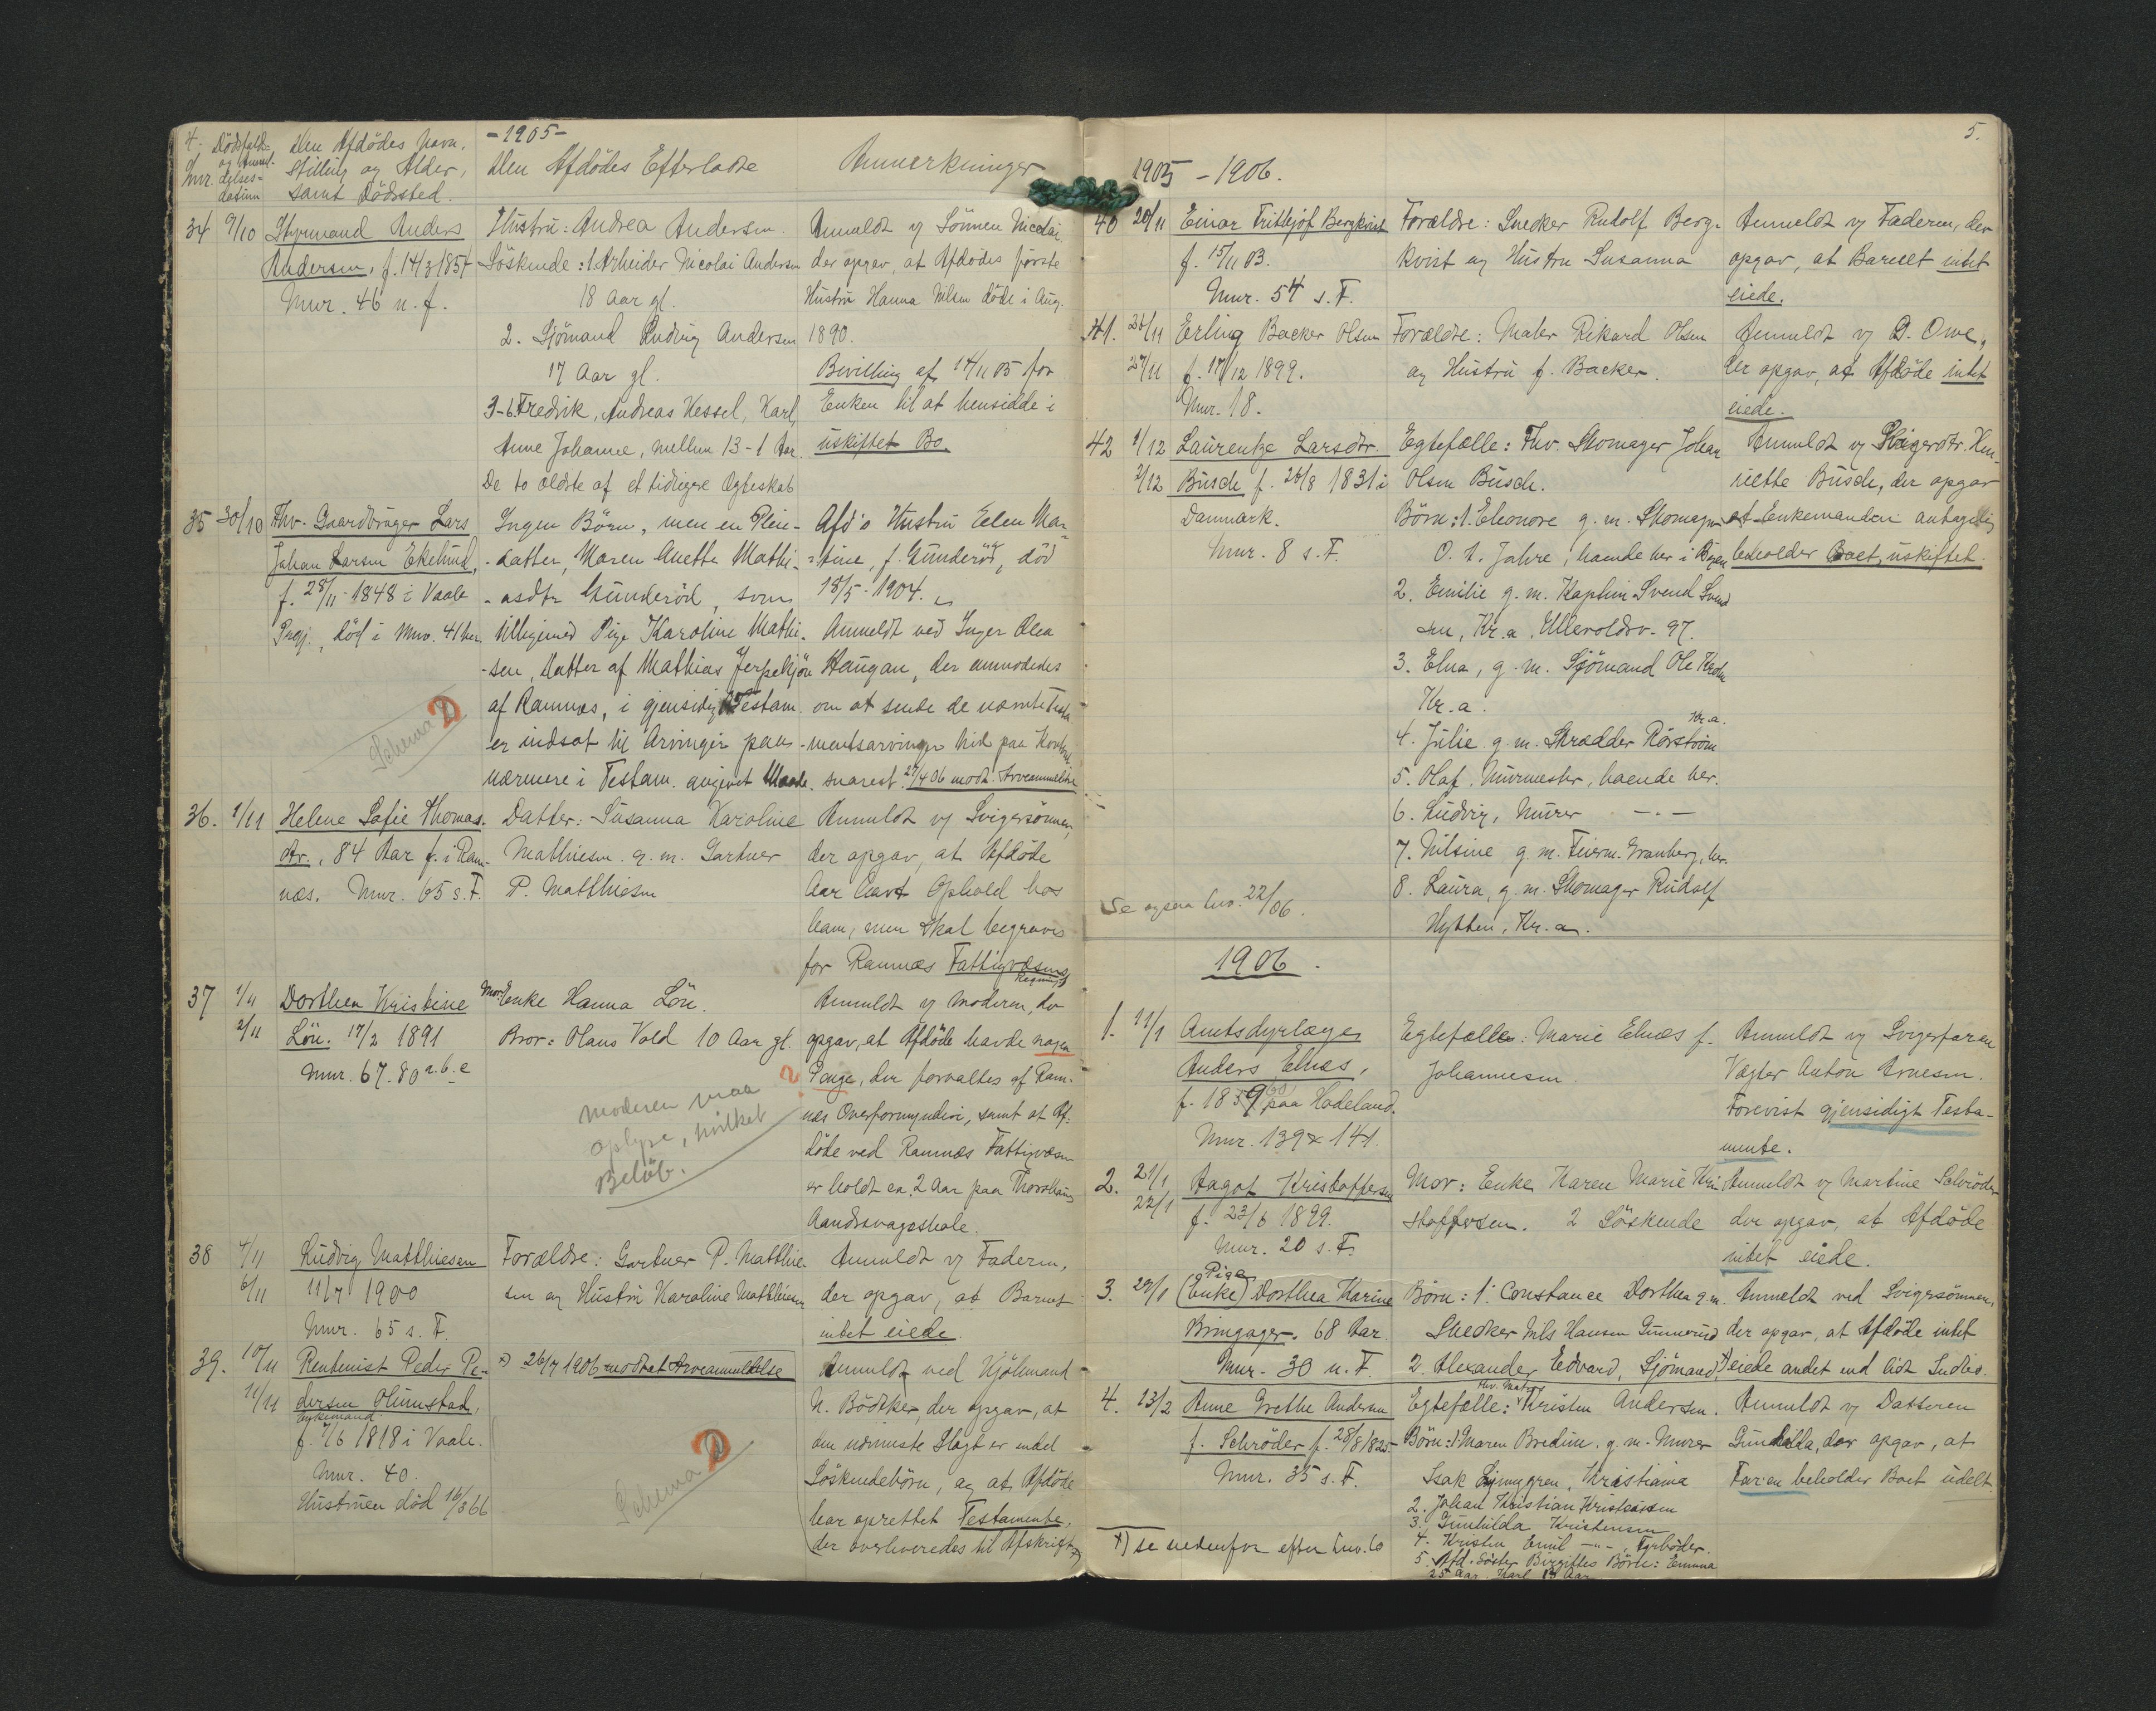 4.
- 1905 -
Dödsfalds- og Anmeldelses-datum
Den Afdödes Navn,
Stilling og Alder,
samt Dödssted.
Den Afdödes Efterladte
Anmerkninger
34 9/10 Styrmand Anders
Andersen, f. 14/3 1857
Mnr. 46 n. f.
Hustru: Andrea Andersen.
Söskende: 1. Arbeider Nicolai Andersen
18 Aar gl.
2. Sjömand Ludvig Andersen
17 Aar gl.
3-6 Fredrik, Andreas Kessel, Karl,
Anne Johanne, mellem 13-1 Aar.
De to ældste af et tidligere Egteskab
Anmeldt v/ Sönnen Nicolai,
der opgav, at Afdödes förste
Hustru Hanna Nilsen döde i Aug.
1890.
Bevilling af 14/11 05 for
Enken til at hensidde i
uskiftet Bo.
35 30/10 Fhv. Gaardbruger Lars
Johan Larsen Ekelund,
f. 28/11 - 1848 i Vaale
Prgj., död i Mnr. 41 her
Ingen Börn, men en Pleie-
-datter, Maren Anette Mathi-
-asdtr Gunderöd, som
tilligemed Pige Karoline Mathi-
-sen, Datter af Mathias Jerpekjön
af Ramnes, i gjensidig Testam.
er indsat til Arvinger paa
nærmere i Testam. angivet Maade.
Afd's Hustru Elen Mar-
-tine, f. Gunderöd, död
18/5 - 1904.
Anmeldt ved Inger Olea
Haugan, der anmodedes
om at sende de nævnte Testa-
-mentsarvinger hid paa Kontoret
snarest. 27/4 06 modt. Arveanmeldelse
Schema D
36. 1/11 Helene Sofie Thomas-
dtr., 84 Aar f. i Ram-
næs. Mnr. 65 s. F.
Datter: Susanna Karoline
Mathiesen g. m. Gartner
P. Matthiesen
Anmeldt v/ Svigersönnen,
der opgav, at Afdöde
har havt Ophold hos
ham, men skal begraves
for Ramnæs Fattigvæsens
Regning
37 1/11 Dorthea Kristine
2/11 Löu. 17/2 1891
Mnr. 67.80 a.b.c
Mor: Enke Hanna Löu.
Bror: Olaus Vold 10 Aar gl.
Anmeldt v/ Moderen, der
opgav, at Afdöde havde nogen
Penge, der forvaltes af Ram-
næs Overformynderi, samt at Af-
döde ved Ramnæs Fattigvæsen
er holdt ca. 2 Aar paa Thorshaug
Aandssvageskole.
?
Moderen maa
oplyse, hvilket
Belöb.
38 4/11 Ludvig Matthiesen
6/11 11/7 1900
Mnr. 65 s. F.
Forældre: Gartner P. Matthie-
sen og Hustru Karoline Matthiesen
Anmeldt v/ Faderen,
der opgav, at Barnet
intet eiede.
39. 10/11 Rentenist Peder Pe-
11/11 dersen Olumstad,
Enkemand
f. 7/6 1818 i Vaale.
Mnr. 40.
Hustruen död 16/3 66
x) 26/7 1906 modtat Arveanmeldelse
Schema D
Anmeldt ved Kjöbmand
N. Bödtker, der opgav, at
den nærmeste Slægt er endel
Söskendebörn, og at Afdöde
har oprettet Testamente,
der overleveredes til Afskrift x)
5.
1905 - 1906.
40 20/11 Einar Frithjof Bergkvist
f. 15/11 03.
Mnr. 54 s. F.
Forældre: Snedker Rudolf Berg-
kvist og Hustru Susanna
Anmeldt v/ Faderen, der
opgav, at Barnet intet
eiede.
41. 26/11 Erling Backer Olsen
27/11 f. 17/12 1899.
Mnr. 18.
Forældre: Maler Rikard Olsen
og Hustru f. Backer.
Anmeldt v/ D. Owe,
der opgav, at Afdöde intet
eiede.
42 1/12 Laurentze Larsdtr.
2/12 Busch f. 26/8 1831 i
Danmark.
Mnr. 8 s. F.
Egtefælle: Fhv. Skomager Johan
Olsen Busch.
Börn: 1. Eleonore g. m. Skomager
O. T. Jahre, boende her i Byen
2. Emilie g. m. Kaptein Svend Svend
sen, Kr.a, Ullevoldsv. 97.
3. Elna, g. m. Sjömand Ole Krohn
Kr.a.
4. Julie g. m. Skrædder Rörström Kr.a.
5. Olaf, Murmester, boende her.
6. Ludvig, Murer - . -
7. Nilsine g. m. Feierm. Granberg, her.
8. Laura, g. m. Skomager Rudolf
Hytten, Kr.a.
Anmeldt v/ Svigerdtr. Hen-
riette Busch, der opgav
at Enkemanden antagelig
beholder Boet uskiftet.
Se ogsaa Lno. 22/06.
1906.
1. 11/1 Amtsdyrlæge
Anders Elnæs,
f. 1859 paa Hadeland.
Mnr. 139 & 141.
Egtefælle: Marie Elnæs f.
Johannesen.
Anmeldt v/ Svigerfaren
Vægter Anton Arnesen.
Forevist gjensidigt Testa-
mente.
2. 21/1 Aagot Kristoffersen
22/1 f. 23/6 1899.
Mnr. 20 s. F.
Mor: Enke Karen Marie Kri-
stoffersen. 2 Söskende
Anmeldt v/ Martine Schröder
der opgav, at Afdöde
intet eiede.
3. 29/1 Pige (Enke) Dorthea Karine
Bringager. 68 Aar
Mnr. 30 n. F.
Börn: 1. Constance Dorthea g. m.
Snedker Nils Hansen Gunnerud
2. Alexander Edvard, Sjömand x)
Anmeldt ved Svigersönnen,
der opgav, at Afdöde intet
eiede andet end lidt Indbo.
4. 13/2 Anne Grethe Andersen
f. Schröder f. 28/8 1825
Mnr. 35 s. F.
Egtefælle: fhv. Matros Kristen Andersen.
Börn: 1. Maren Bredine, g. m. Murer
Isak Ljunggren, Kristiania
2. Johan Kristian Kristensen
3. Gunhilda Kristensen
4. Kristen Emil - " -, Fyrböder.
5. Afd. Söster Birgittes Börn: Emma
25 Aar, Karl
Anmeldt v/ Datteren
Gunhilda, der opgav, at
Faren beholder Boet udelt.
x) se nedenfor efter Lno. 6